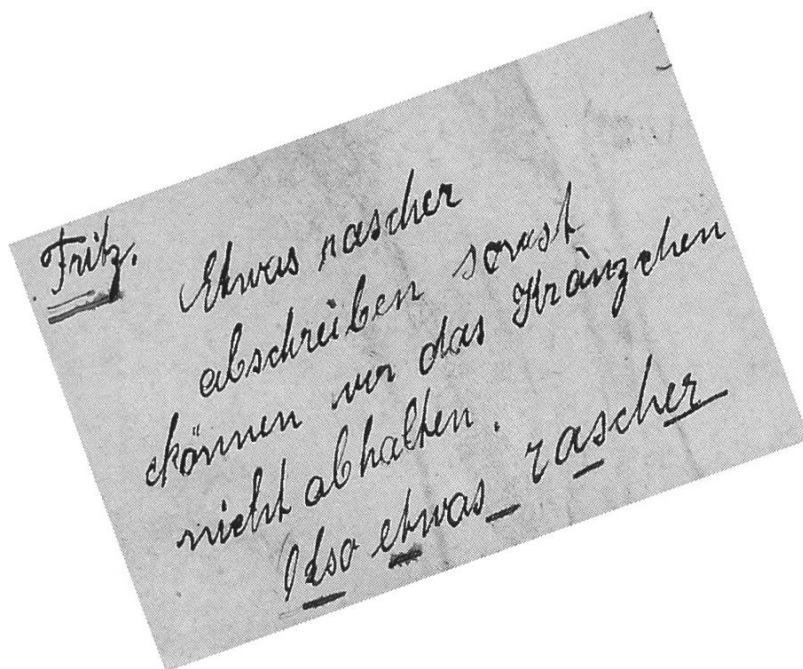 Fritz. Etwas rascher
abschreiben sonst
können wir das Kränzchen
nicht abhalten.
Also etwas rascher